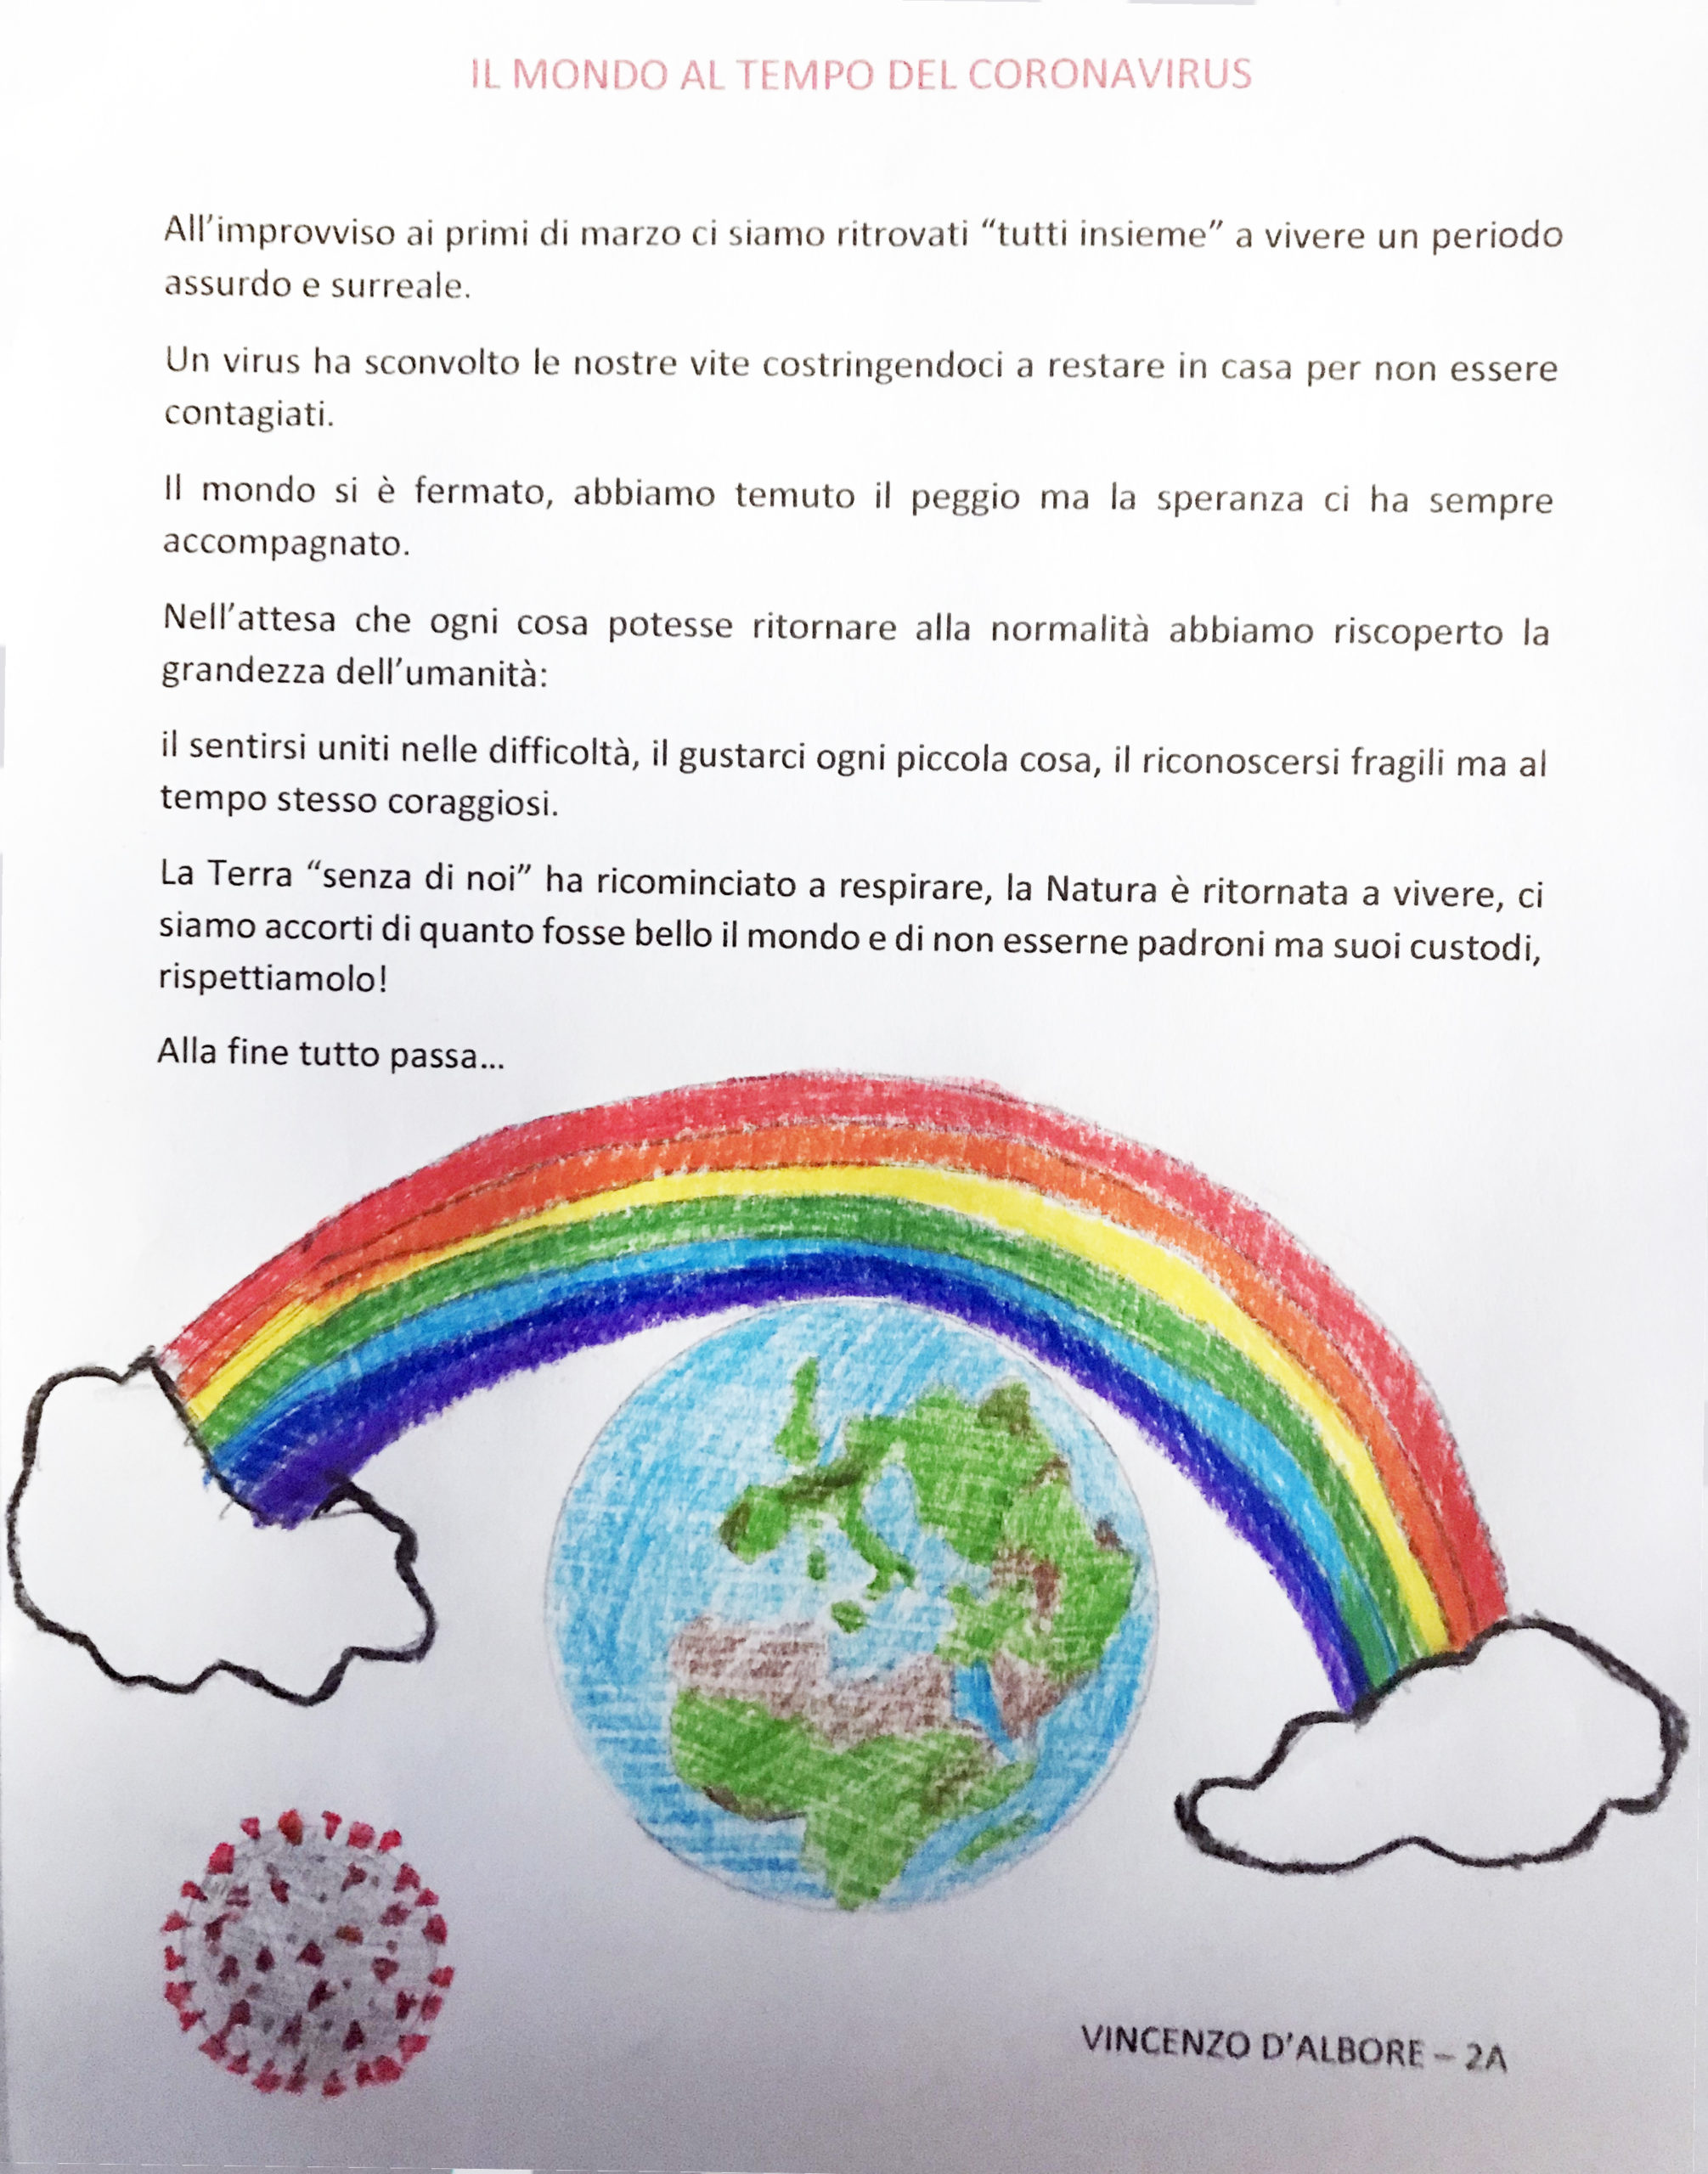 IL MONDO AL TEMPO DEL CORONAVIRUS
All’improvviso ai primi di marzo ci siamo ritrovati “tutti insieme” a vivere un periodo
assurdo e surreale.
Un virus ha sconvolto le nostre vite costringendoci a restare in casa per non essere
contagiati.
Il mondo si è fermato, abbiamo temuto il peggio ma la speranza ci ha sempre
accompagnato.
Nell’attesa che ogni cosa potesse ritornare alla normalità abbiamo riscoperto la
grandezza dell’umanità:
il sentirsi uniti nelle difficoltà, il gustarci ogni piccola cosa, il riconoscersi fragili ma al
tempo stesso coraggiosi.
La Terra “senza di noi” ha ricominciato a respirare, la Natura è ritornata a vivere, ci
siamo accorti di quanto fosse bello il mondo e di non esserne padroni ma suoi custodi,
rispettiamolo!
Alla fine tutto passa…
VINCENZO D’ALBORE – 2A